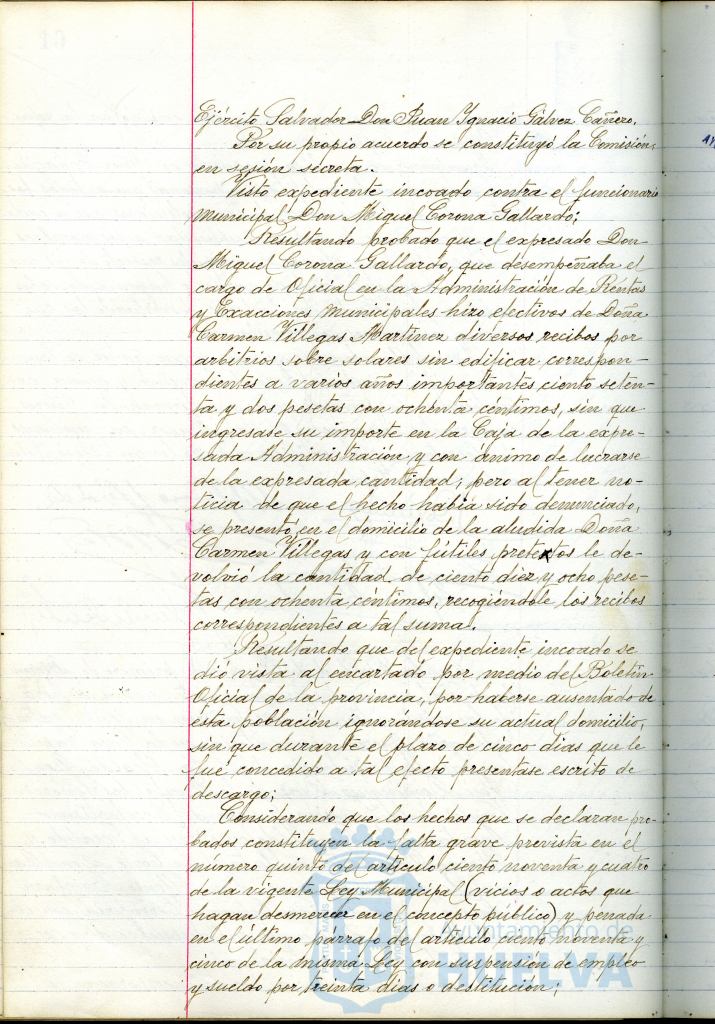 Ejército Salvador Don Juan Ignacio Gálvez Cañero.
Por su propio acuerdo se constituyó la Comisión,
en sesión secreta.
Visto expediente incoado contra el funcionario
municipal Don Miguel Corona Gallardo;
Resultando probado que el expresado Don
Miguel Corona Gallardo, que desempeñaba el
cargo de Oficial en la Administración de Rentas
y Exacciones municipales hizo efectivos de Doña
Carmen Villegas Martínez diversos recibos por
arbitrios sobre solares sin edificar correspon-
dientes a varios años importantes ciento seten-
ta y dos pesetas con ochenta céntimos, sin que
ingresase su importe en la Caja de la expre-
sada Administración y con ánimo de lucrarse
de la expresada cantidad; pero al tener no-
ticia de que el hecho había sido denunciado,
se presentó en el domicilio de la aludida Doña
Carmen Villegas y con fútiles pretextos le de-
volvió la cantidad de ciento diez y ocho pese-
tas con ochenta céntimos, recogiéndole los recibos
correspondientes a tal suma.
Resultando que del expediente incoado se
dió vista al encartado por medio del Boletín
Oficial de la provincia, por haberse ausentado de
esta población ignorándose su actual domicilio,
sin que durante el plazo de cinco dias que le
fué concedido a tal efecto presentase escrito de
descargo;
Considerando que los hechos que se declaran pro-
bados constituyen la falta grave prevista en el
número quinto del artículo ciento noventa y cuatro
de la vigente Ley Municipal (vicios o actos que
hagan desmerecer en el concepto público) y penada
en el último párrafo del artículo ciento noventa y
cinco de la misma Ley con suspensión de empleo
y sueldo por treinta dias o destitución;
Ayuntamiento de
HUELVA